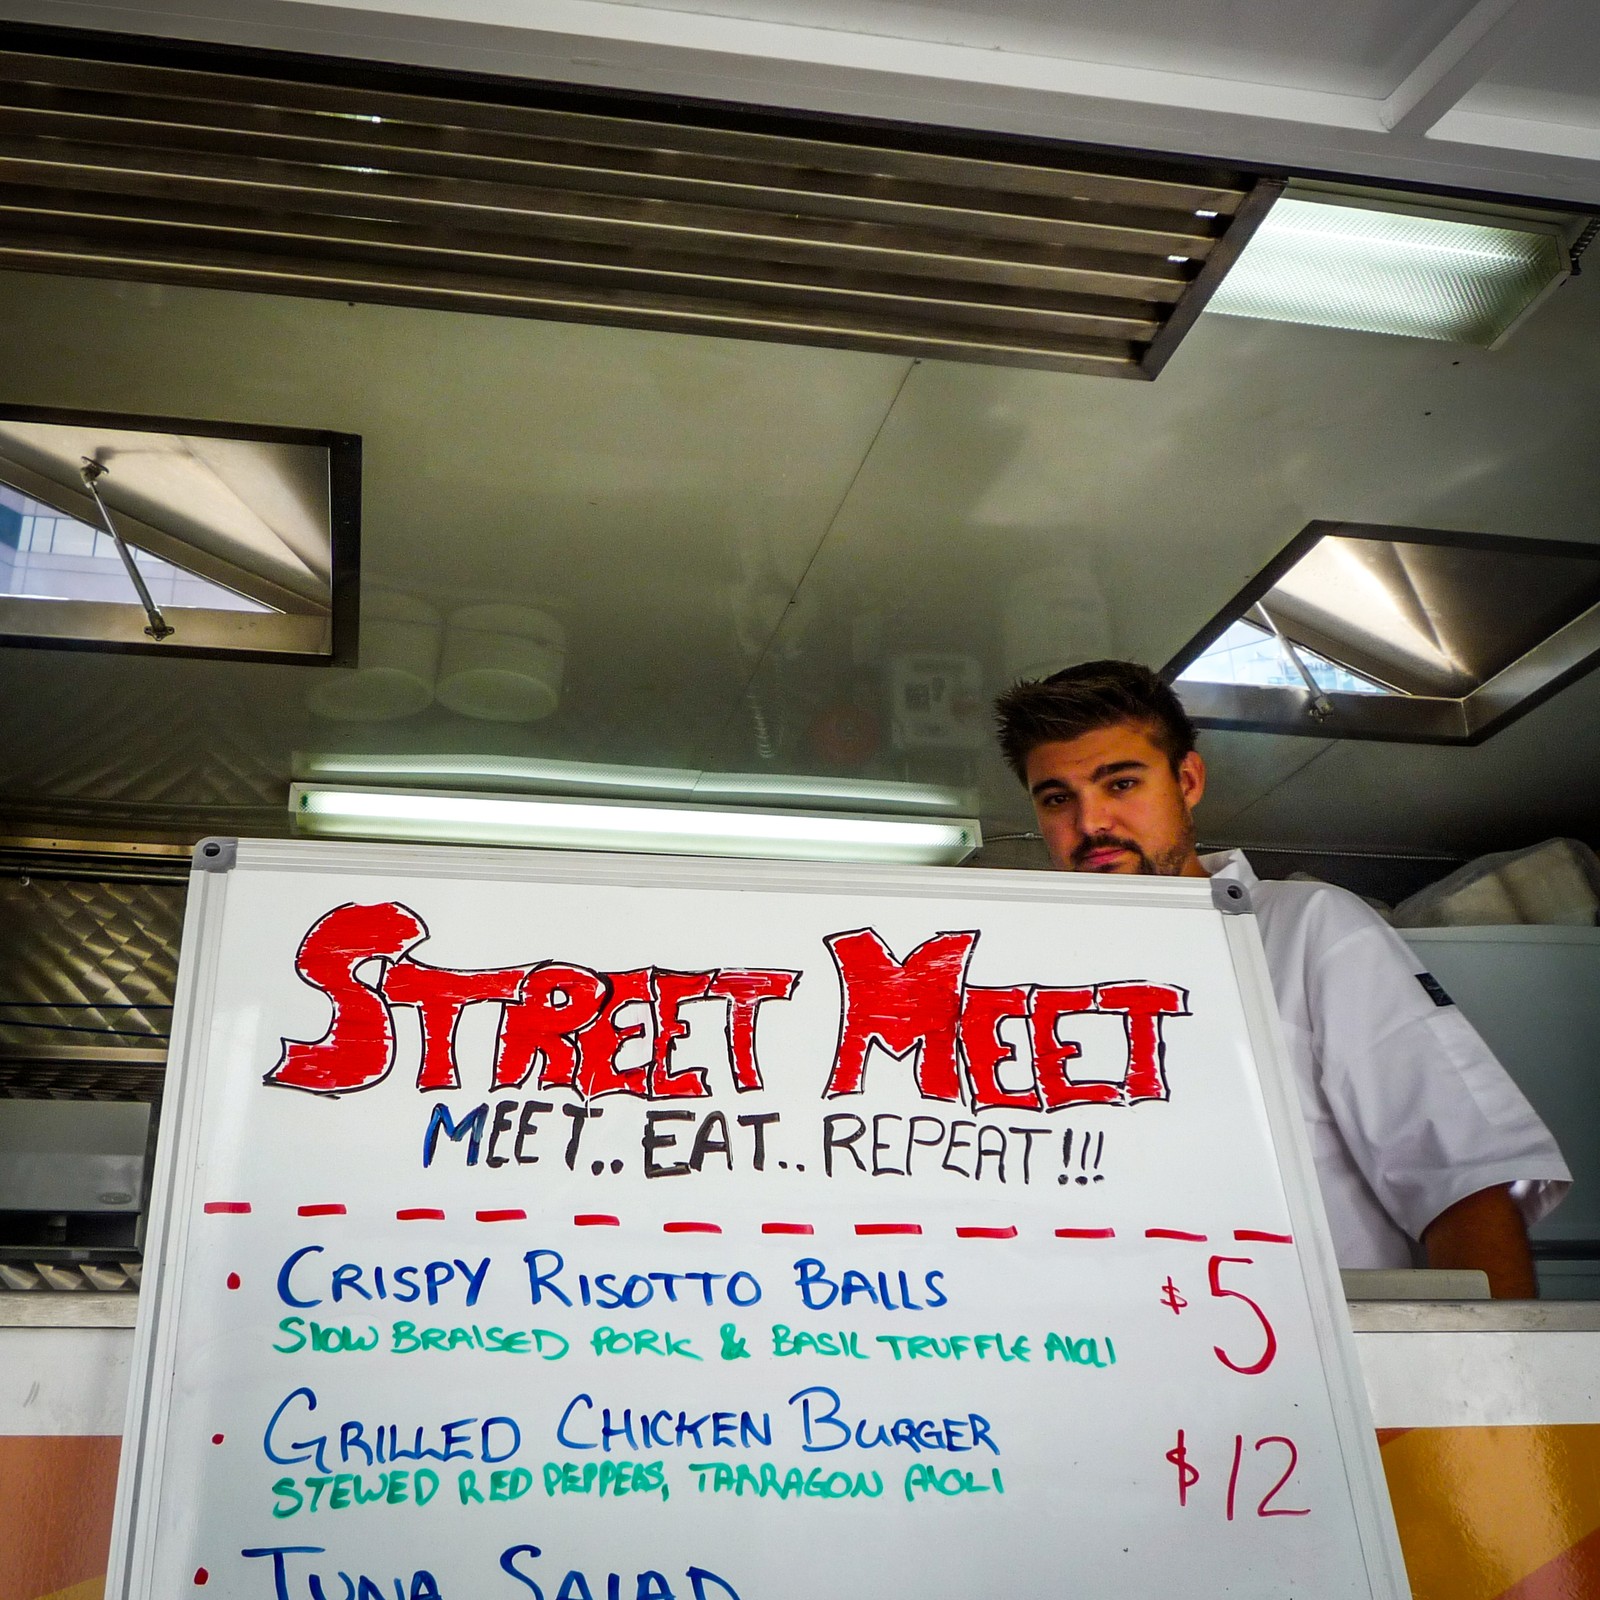 STREET MEET
MEET.. EAT.. REPEAT!!!
• CRISPY RISOTTO BALLS $5
SLOW BRAISED PORK & BASIL TRUFFLE AIOLI
• GRILLED CHICKEN BURGER $12
STEWED RED PEPPERS, TARRAGON AIOLI
• TUNA SALAD